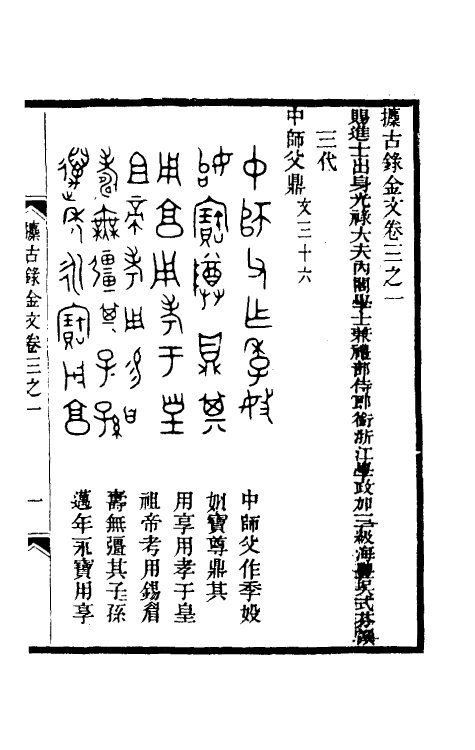 攈古錄金文卷三之一
賜進士出身光祿大夫內閣學士兼禮部侍郎銜浙江學政加三級海豐吳式芬譔
三代
中師父鼎 文三十六
中師父作季
寶尊鼎其
用享用孝于皇
祖帝考用錫眉
壽無彊其子孫
萬年永寶用享
攈古錄金文卷三之一
一